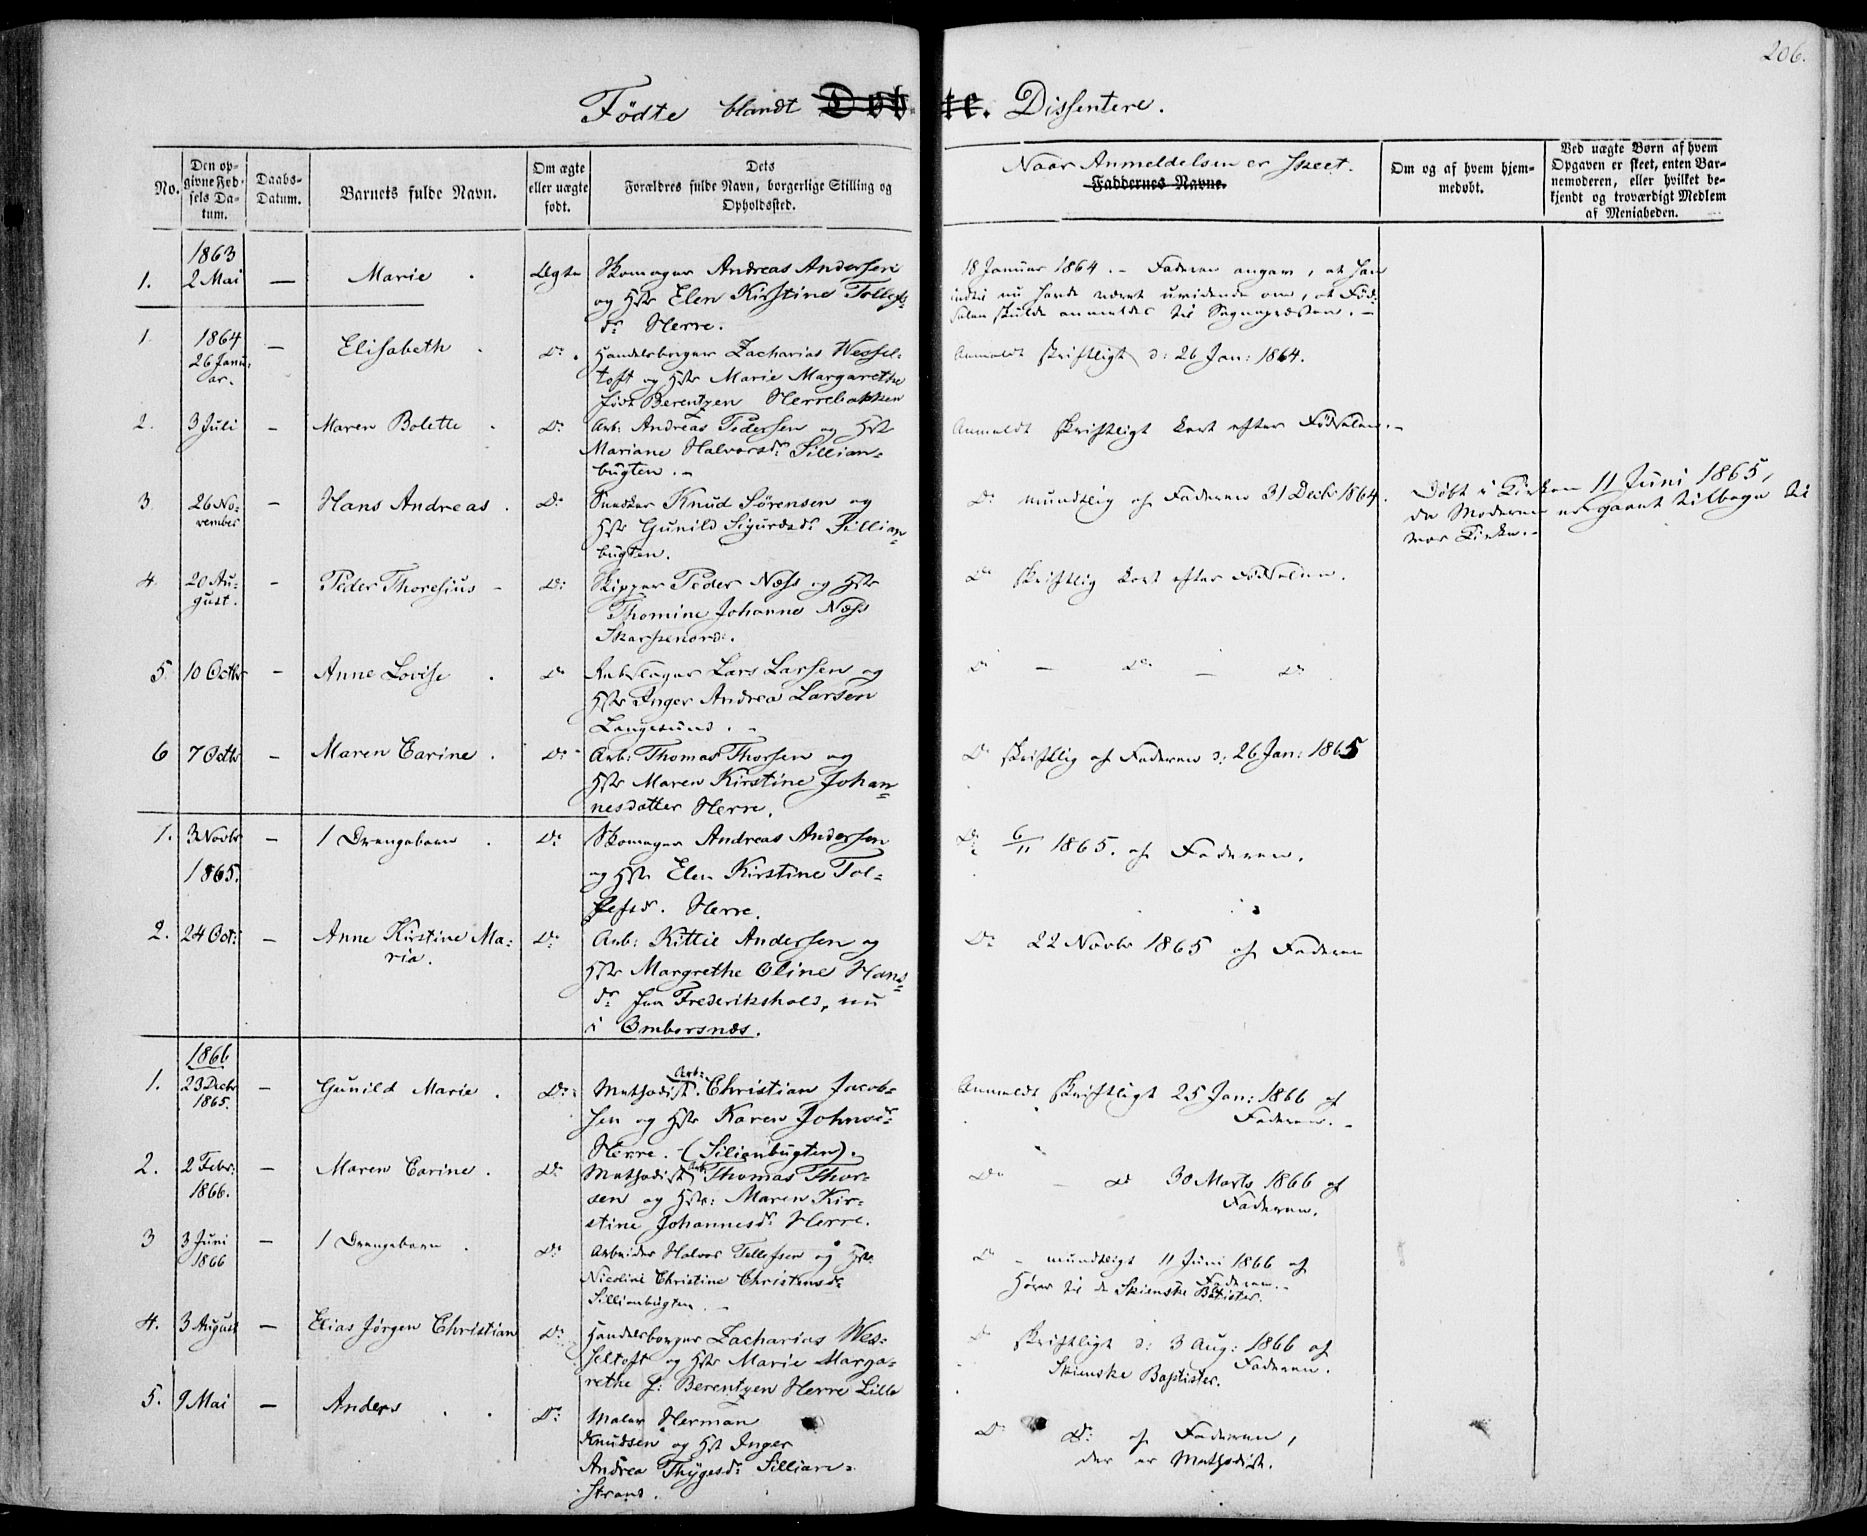 206.
Fødte blandt Døbte. Dissentere.
No.
Den op-
givne Fød-
sels Da-
tum.
Daabs-
Datum.
Barnets fulde Navn.
Om ægte
eller uægte
født.
Dets
Forældres fulde Navn, borgerlige Stilling og
Opholdssted.
Naar Anmeldelsen er skeet.
Faddernes Navne.
Om og af hvem hjem-
medøbt.
Ved uægte Børn af hvem
Opgaven er skeet, enten Bar-
nemoderen, eller hvilket be-
kjendt og troværdigt Medlem
af Menigheden.
1863
1. 2 Mai — Marie . Ægte Skomager Andreas Andersen
og Hstr Elen Kirstine Tollefs-
dr Herre.
18 Januar 1864. – Faderen angav, at han
indtil nu havde været uvidende om, at Fød-
selen skulde anmeldes til Sognepræsten. –
1864
1 26 Janu-
ar. — Elisabeth . Do. Handelsborger Zacharias Wessel-
toft og Hstr Marie Margarethe
født Berentzen Herrebakken
Anmeldt skriftligt d: 26 Jan: 1864.
2. 3 Juli – Maren Bolette . Do Arb: Andreas Pedersen og Hst
Mariane Halvorsdr Sillian-
bugten. –
Anmeldt skriftligt kort efter Fødselen. –
3 26 No-
vember – Hans Andreas . Do Knud Sørensen og
Hstr Gunild Sigurdsdr Sillian-
bugten.
Do mundtlig af Faderen 31 Decb 1864.
Døbt i Kirken 11 Juni 1865,
da Moderen er gaaet tilbage til
vor Kirke. –
4. 20 Au-
gust. – Peder Thoresius – Do: Skipper Peder Næss og Hstr
Thomine Johanne Næss
Skarpenord.
Do skriftlig kort efter Fødselen.
5. 10 Octbr – Anne Lovise . Do Lars Larsen og
Hstr Inger Andrea Larsen
Langesund. –
Do — Do — Do
6 7 Octbr – Maren Carine . Do Arb: Thomas Thorsen og
Hstr Maren Kirstine Johan-
nesdatter Herre.
Do skriftlig af Faderen d: 26 Jan: 1865
1. 3 Novbr
1865. – 1 Drengebarn . Do: Skomager Andreas Andersen
og Hstr Elen Kirstine Tol-
lefsdr. Herre.
Do 6/11 1865. af Faderen.
2. 24 Oct: – Anne Kirstine Ma-
ria. Do: Arb: Kittil Andersen og
Hstr Margrethe Oline Hans-
dr fra Frederikshald, nu
i Omborsnæs.
Do 22 Novbr 1865 af Faderen
1866
1. 23 Decbr
1865. – Gunild Marie . Do: Methodist. Arb: Christian Jacob-
sen og Hstr Karen Johnsdr
Herre. (Silianbugten).
Anmeldt skriftligt 25 Jan: 1866 af
Faderen. –
2. 2 Febr:
1866. – Maren Carine . Do Methodist Arb: Thomas Thor-
sen og Hstr: Maren Kir-
stine Johannesdr Herre.
Do – Do 30 Marts 1866 af
Faderen.
3 3 Juni
1866 – 1 Drengebarn . Do Arbeider Halvor Tellefsen og Hstr
Nicoline Christine Christensdr
Sillianbugten. –
Do – mundtligt 11 Juni 1866 af
Faderen. –
Hører til de Skienske Baptister.
4. 3 August – Elias Jørgen Christian Do: Handelsborger Zacharias Wes-
seltoft og Hstr Marie Marga-
rethe f: Berentzen Herre Lille
Do skriftligt d: 3 Aug: 1866 af
Faderen.
Skienske Baptister.
5. 9 Mai – Anders . . Do: Maler Herman
Knudsen og Hst Inger
Andrea Thygesdr Sillian-
strand.
Do Do: af Faderen,
der er Methodist.